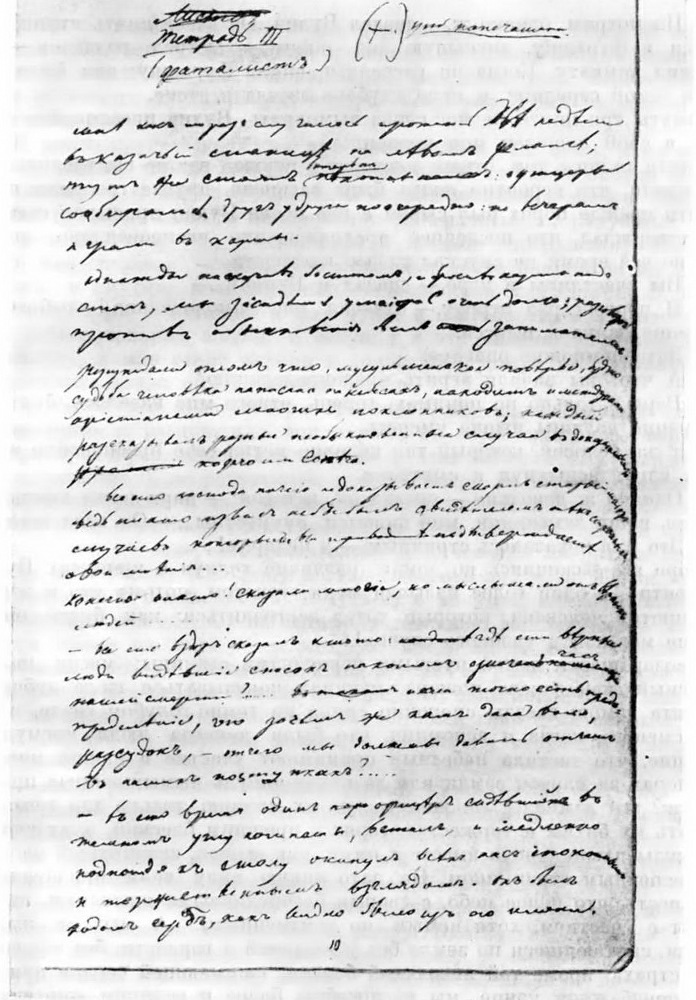 Тетрадь III
(Фаталистъ)
(+) уже напечатано
мнѣ какъ то разъ случилось прожить двѣ недѣли
въ казачьей станицѣ на лѣвомъ флангѣ;
тутъ же стоялъ баталіонъ пѣхоты; офицеры
собирались другъ у друга поочередно, по вечерамъ
играли въ карты.
Однажды наскучивъ бостономъ, и бросивъ карты подъ
столъ, мы засидѣлись у маіора С очень долго; разговоръ
противъ обыкновенія былъ занимателенъ.
разсуждали о томъ что, мусульманское повѣрье, будто
судьба человѣка написана на небесахъ находитъ и между
многихъ поклонниковъ; каждый
разсказывалъ разные необыкновенные случаи
pro или contra.
все это, господа, ничего не доказываетъ сказалъ старый
вѣдь никто изъ васъ не былъ свидѣтелемъ
случаевъ которыми вы подтверждаете
свои мнѣнія
Конечно никто! сказали многіе! но мы слышали отъ вѣрныхъ
людей...
– все это вздоръ! сказалъ кто то: гдѣ эти вѣрные
люди видѣвшіе списокъ на которомъ означенъ часъ
нашей смерти? .. если точно есть предо-
предѣленіе, то зачѣмъ же намъ дана воля,
разсудокъ – отчего мы должны давать отчетъ
въ нашихъ поступкахъ?...
– въ это время одинъ офицеръ сидѣвшій въ
темномъ углу комнаты всталъ, и медленно
подойдя къ столу окинулъ всѣхъ
и торжественнымъ взглядомъ. онъ былъ
родомъ сербъ, какъ видно было изъ его имени.
10